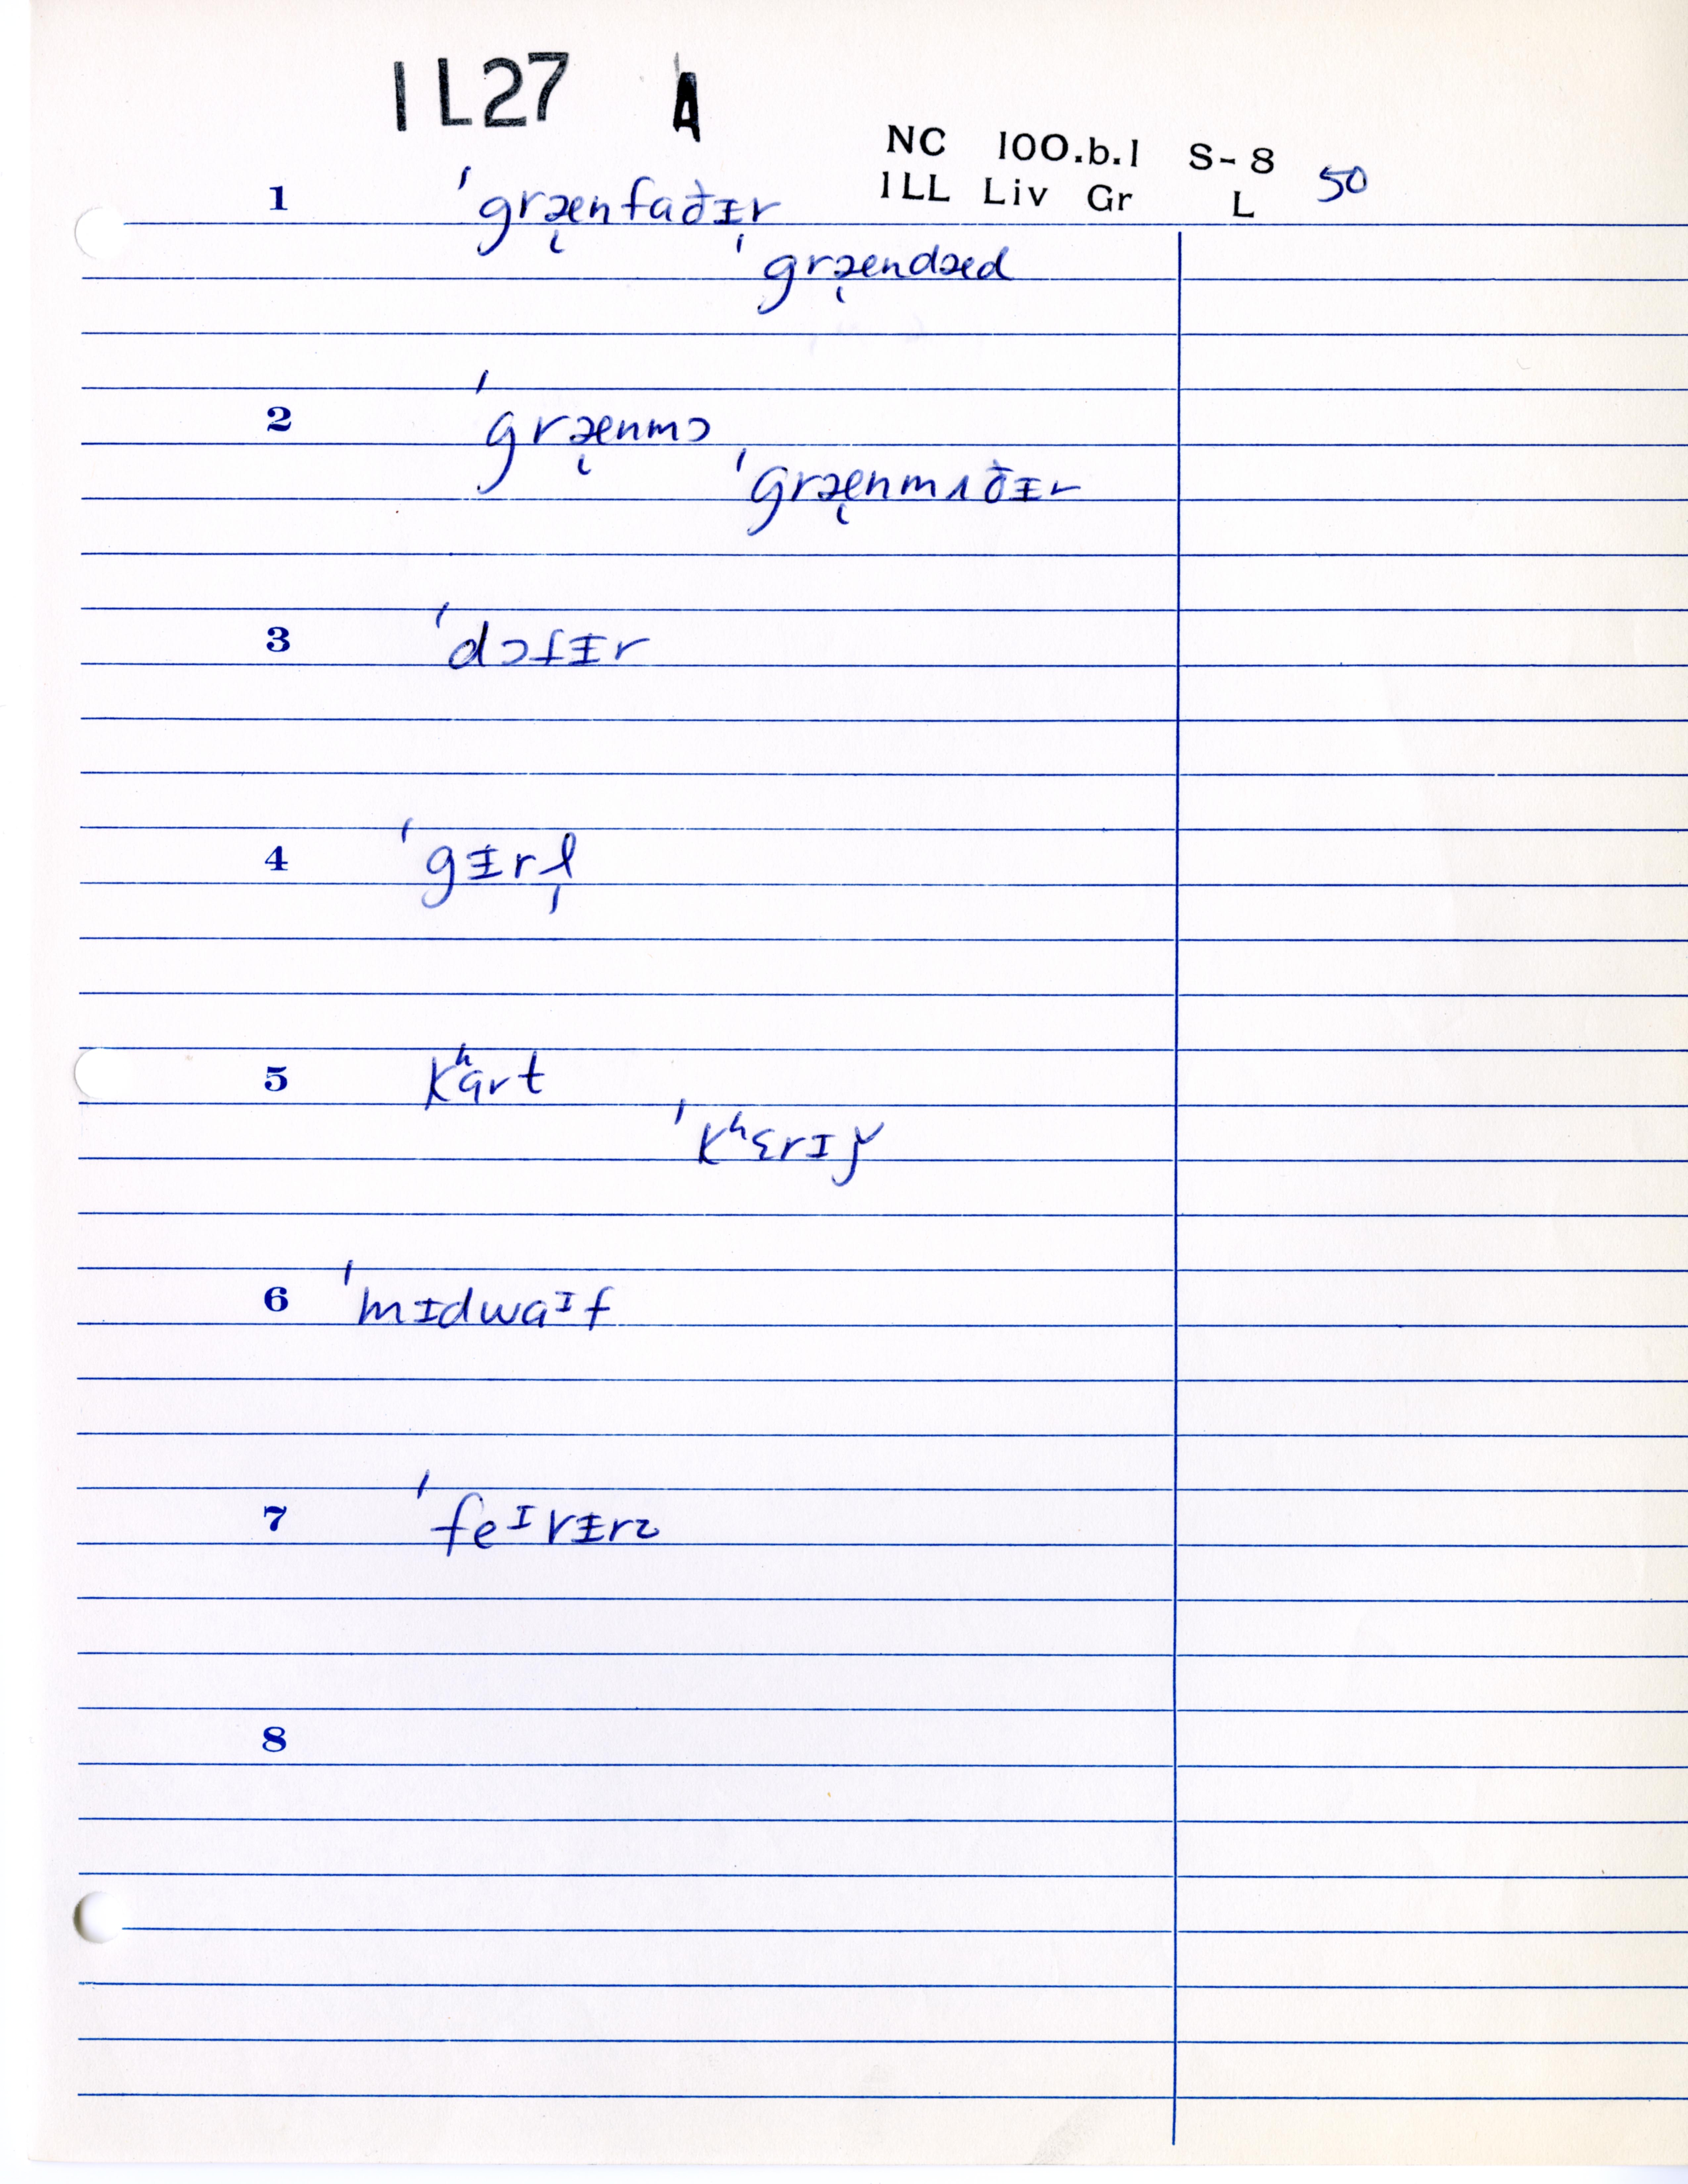 IL27 A
NC 100.b.1 S-8
ILL Liv Gr L 50
1 ˈgræ̨nfaðɪ̵r
ˈgræ̨ndæd
2 ˈgræ̨nmɔ
ˈgræ̨nmʌðɪ̵r
3 ˈdɔfɪ̵r
4 ˈgɪ̵rɫ̩
5 kʰɑrt
ˈkʰɛrɪǰ
6 ˈmɪdwaᶦf
7 ˈfeᶦvɪ̵rz
8